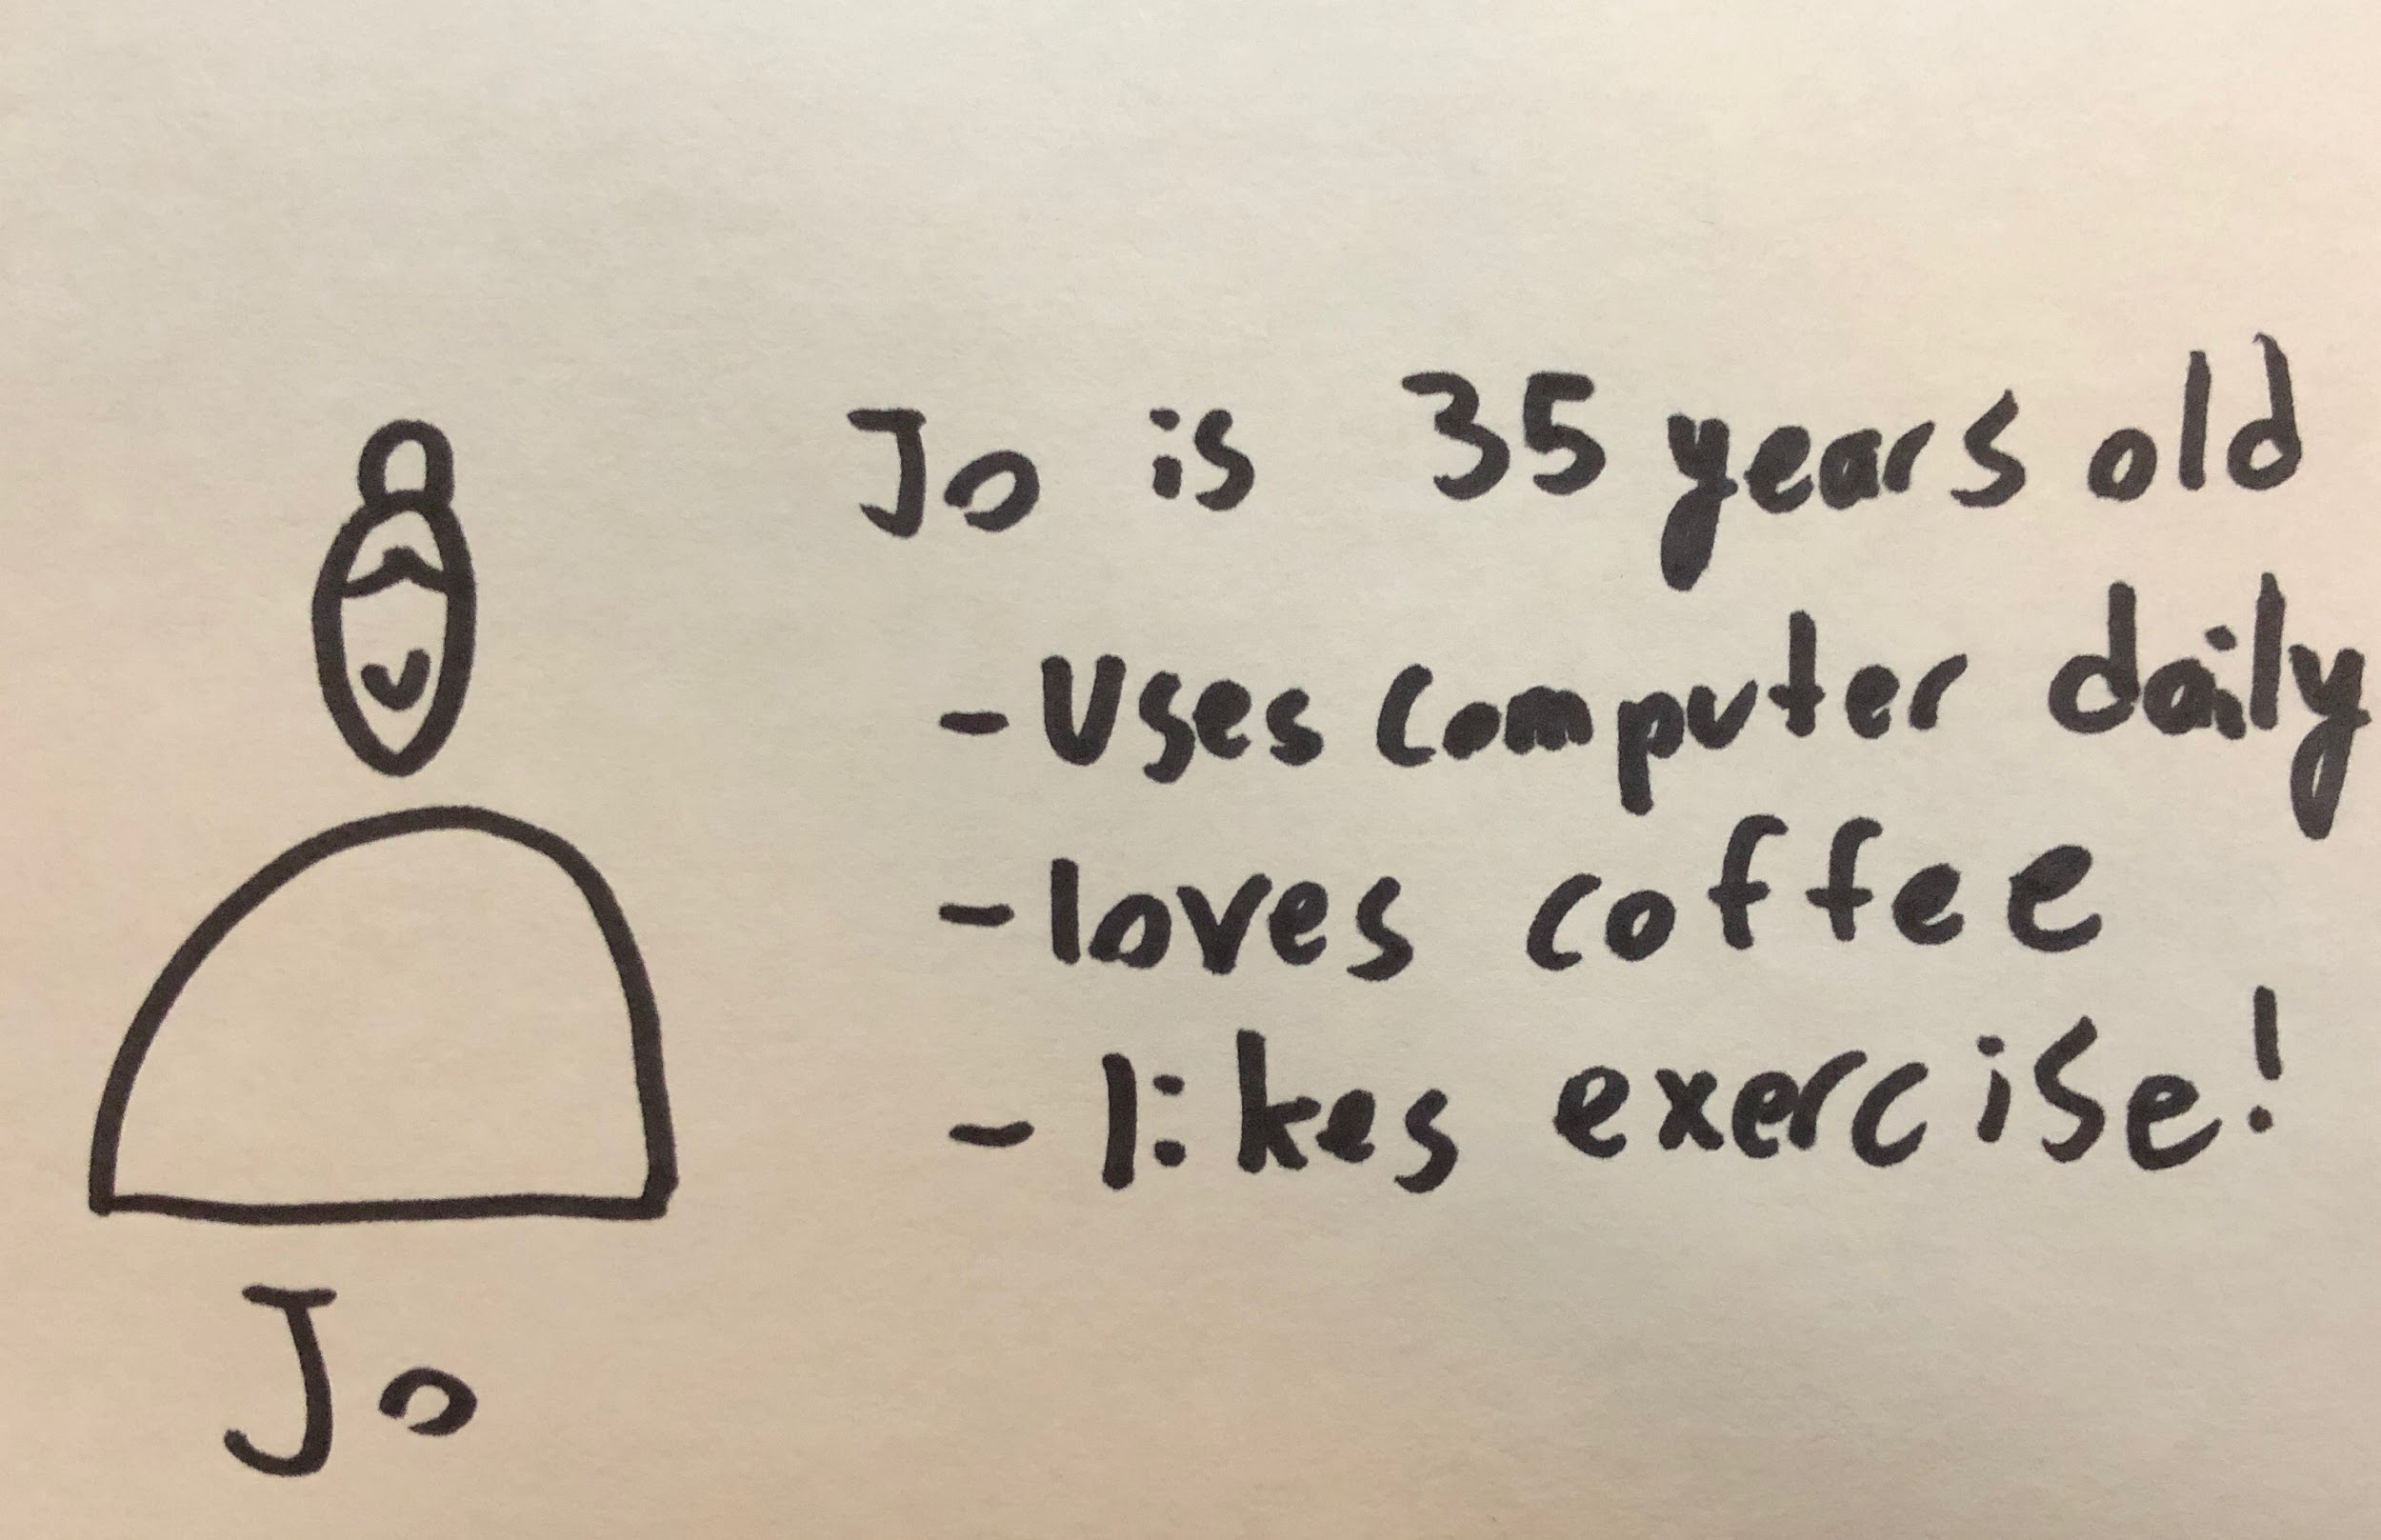 Jo is 35 years old
- Uses computer daily
- loves coffee
- likes exercise!
Jo